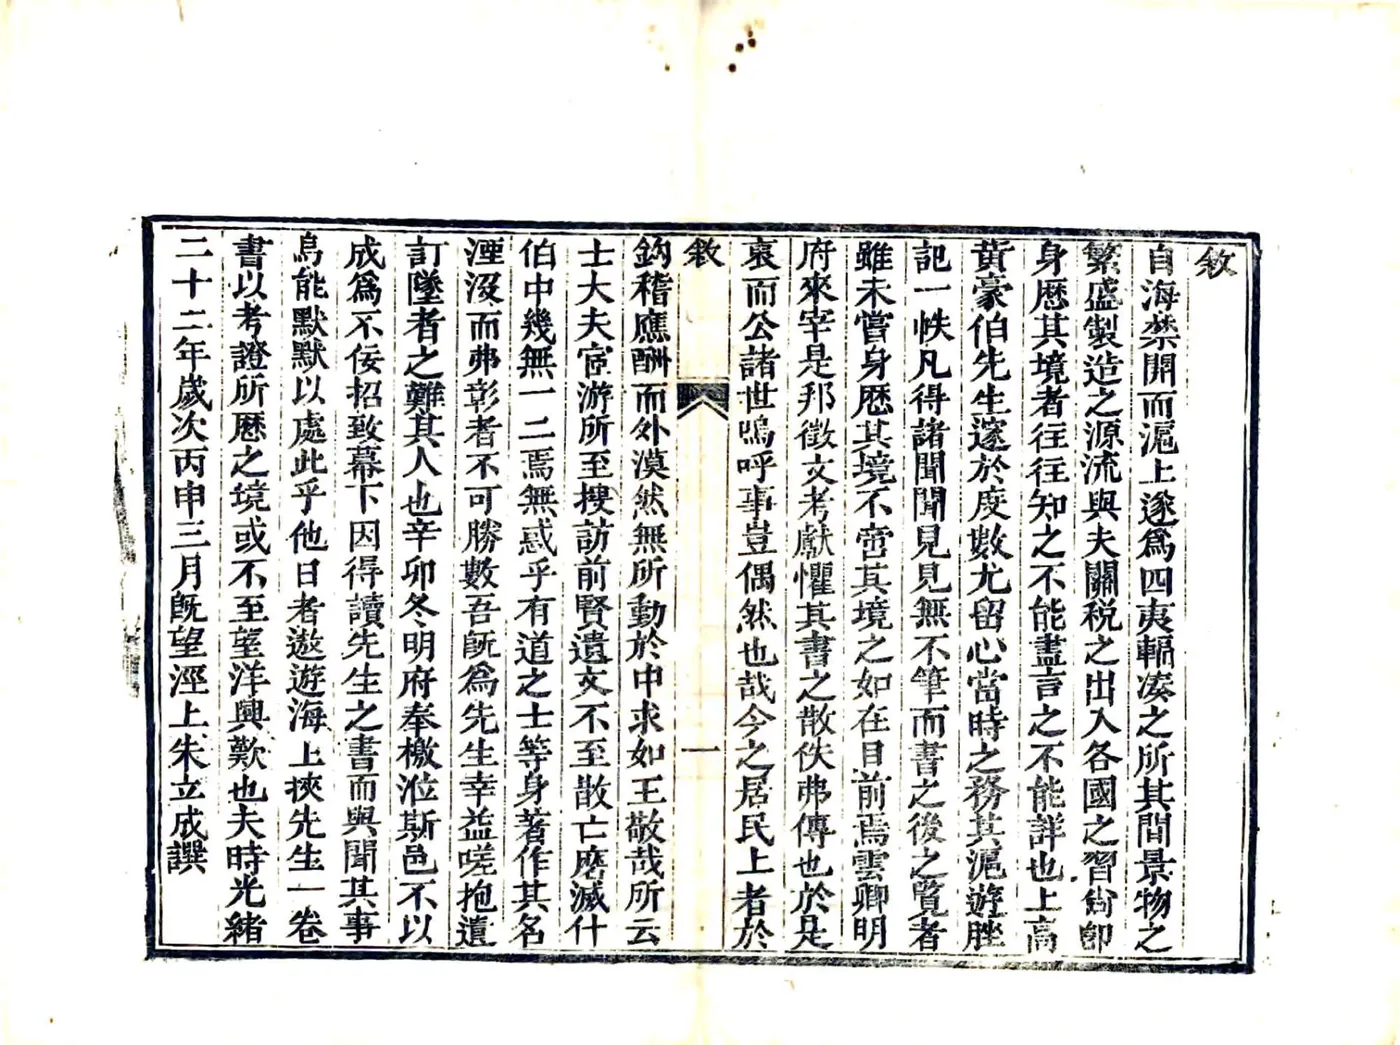 敘
自海禁開而滬上遂爲四夷輻湊之所其間景物之
繁盛製造之源流與夫關稅之出入各國之習尙卽
身歷其境者往往知之不能盡言之不能詳也上高
黃豪伯先生邃於度數尤留心當時之務其滬遊脞
記一帙凡得諸聞聞見見無不筆而書之後之覽者
雖未嘗身歷其境不啻其境之如在目前焉雲卿明
府來宰是邦徵文考獻懼其書之散佚弗傳也於是
裒而公諸世嗚呼事豈偶然也哉今之居民上者於
敘
一
鈎稽應酬而外漠然無所動於中求如王敬哉所云
士大夫宦游所至搜訪前賢遺文不至散亡磨滅什
伯中幾無一二焉無惑乎有道之士等身著作其名
湮沒而弗彰者不可勝數吾旣爲先生幸益嗟抱遺
訂墜者之難其人也辛卯冬明府奉檄涖斯邑不以
成爲不佞招致幕下因得讀先生之書而與聞其事
烏能默默以處此乎他日者遨遊海上挾先生一卷
書以考證所歷之境或不至望洋興歎也夫時光緒
二十二年歲次丙申三月旣望涇上朱立成譔